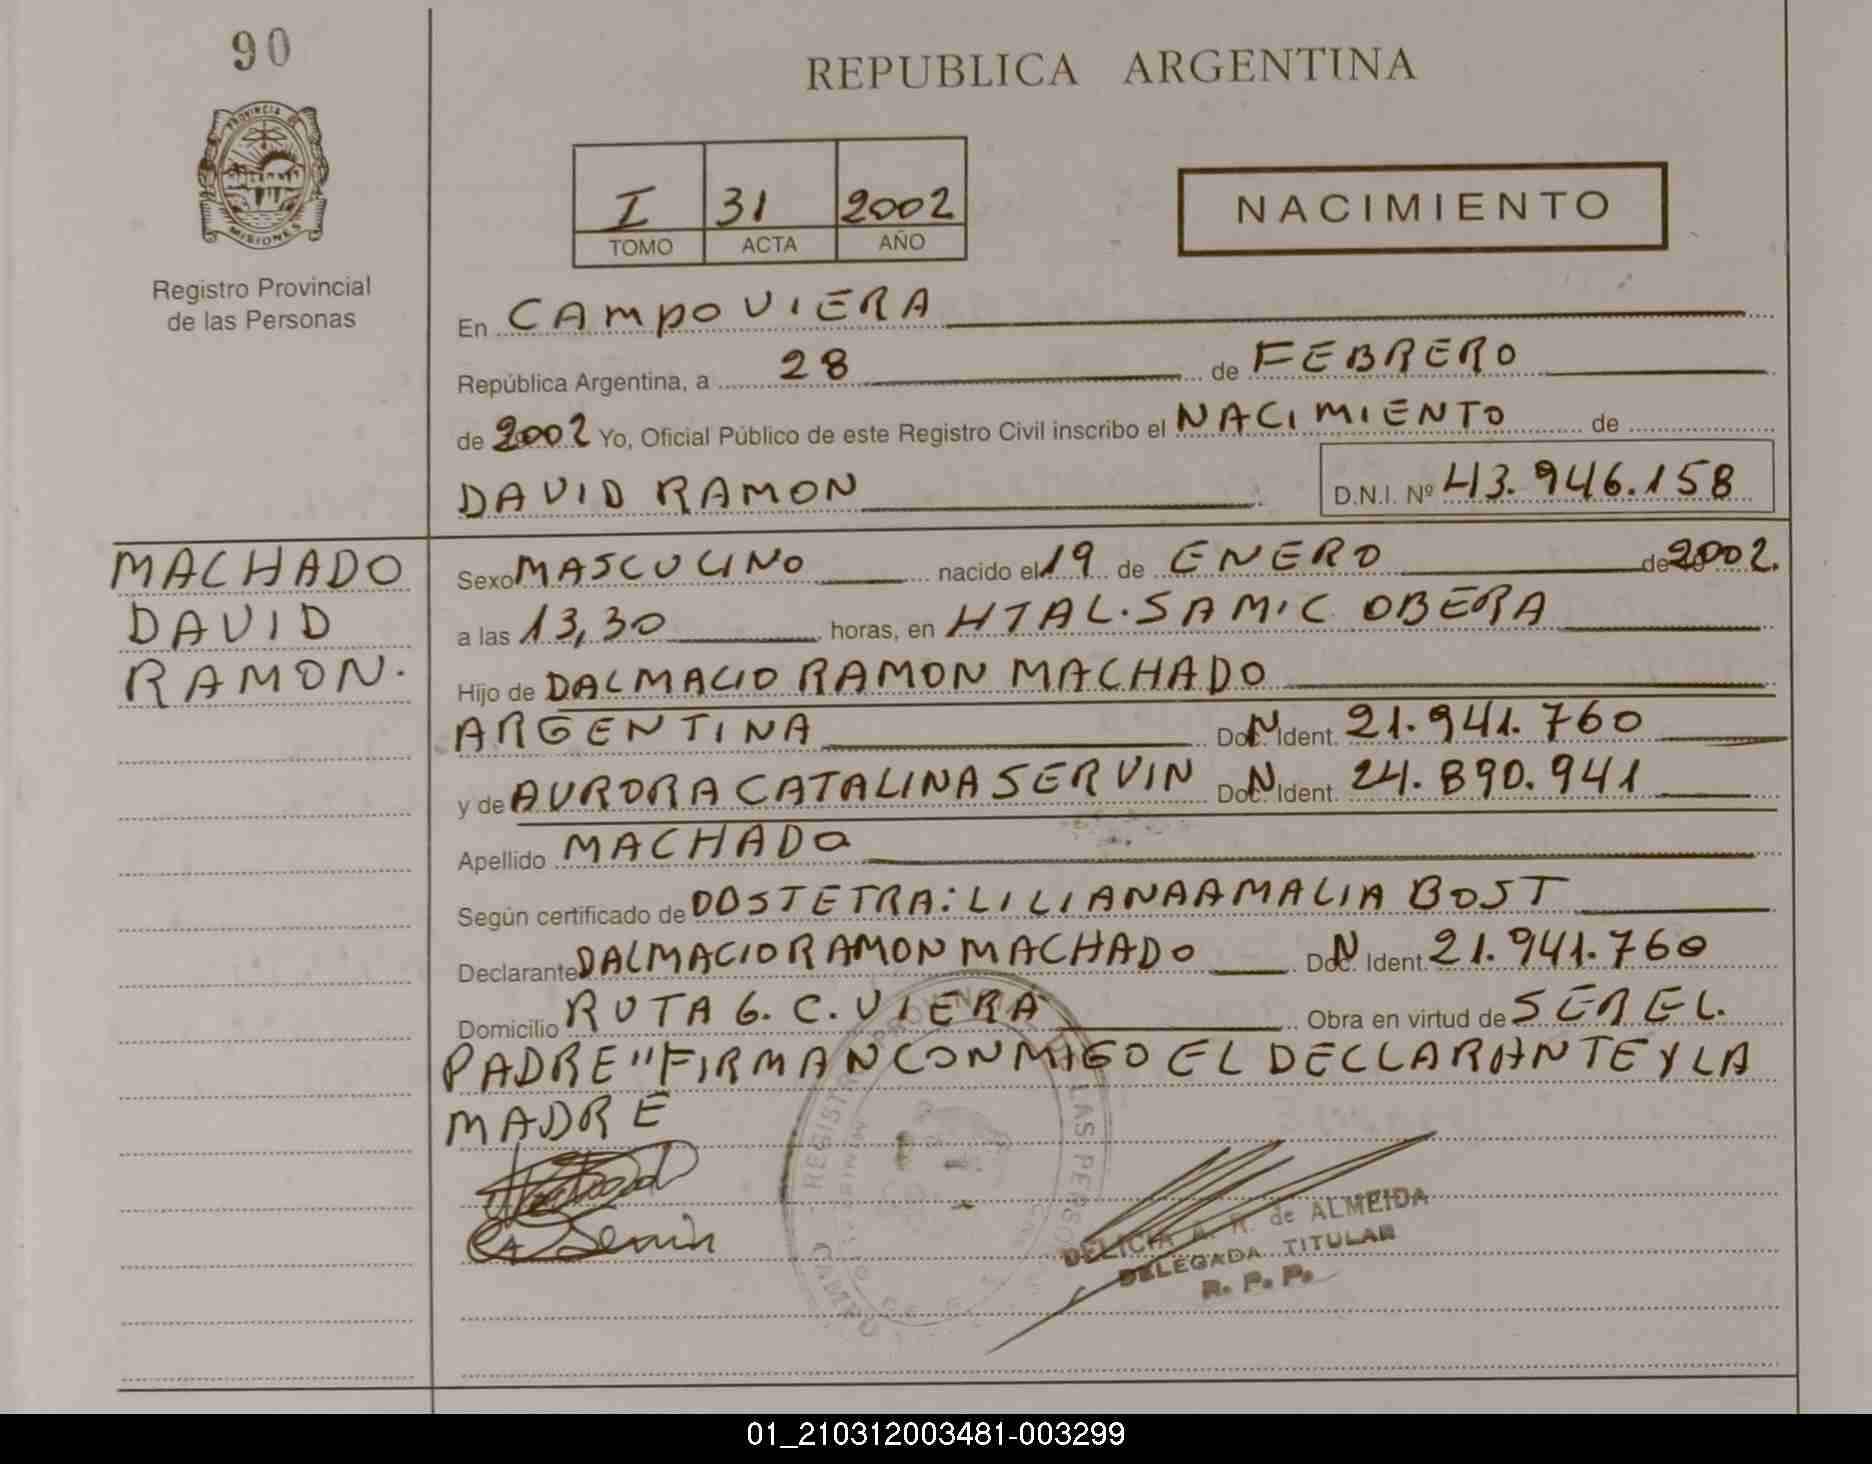 90
REPUBLICA ARGENTINA
PROVINCIA DE
MISIONES
Registro Provincial
de las Personas
I 31 2002
TOMO ACTA AÑO
NACIMIENTO
En CAMPO VIERA
República Argentina, a 28 de FEBRERO
de 2002 Yo, Oficial Público de este Registro Civil inscribo el NACIMIENTO de
DAVID RAMON D.N.I. Nº 43.946.158
MACHADO
DAVID
RAMON.
Sexo MASCULINO nacido el 19 de ENERO de 2002.
a las 13,30 horas, en HTAL. SAMIC OBERA
Hijo de DALMACIO RAMON MACHADO
ARGENTINA Doc. N Ident. 21.941.760
y de AURORA CATALINA SERVIN Doc. N Ident. 24.890.941
Apellido MACHADO
Según certificado de OBSTETRA: LILIANA AMALIA BOST
Declarante DALMACIO RAMON MACHADO Doc. N Ident. 21.941.760
Domicilio RUTA 6. C. VIERA Obra en virtud de SER EL.
PADRE "FIRMAN CONMIGO EL DECLARANTE Y LA
MADRE
Servin
REGISTRO PROVINCIAL DE LAS PERSONAS
DELICIA A. R. de ALMEIDA
DELEGADA TITULAR
R. P. P.
01_210312003481-003299